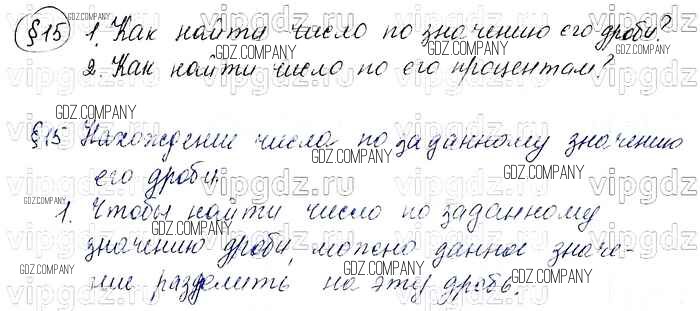 §15 1. Как найти число по значению его дроби?
2. Как найти число по его процентам?
§15 Нахождение числа по заданному значению
его дроби.
1. Чтобы найти число по заданному
значению дроби, можно данное значе-
ние разделить на эту дробь.